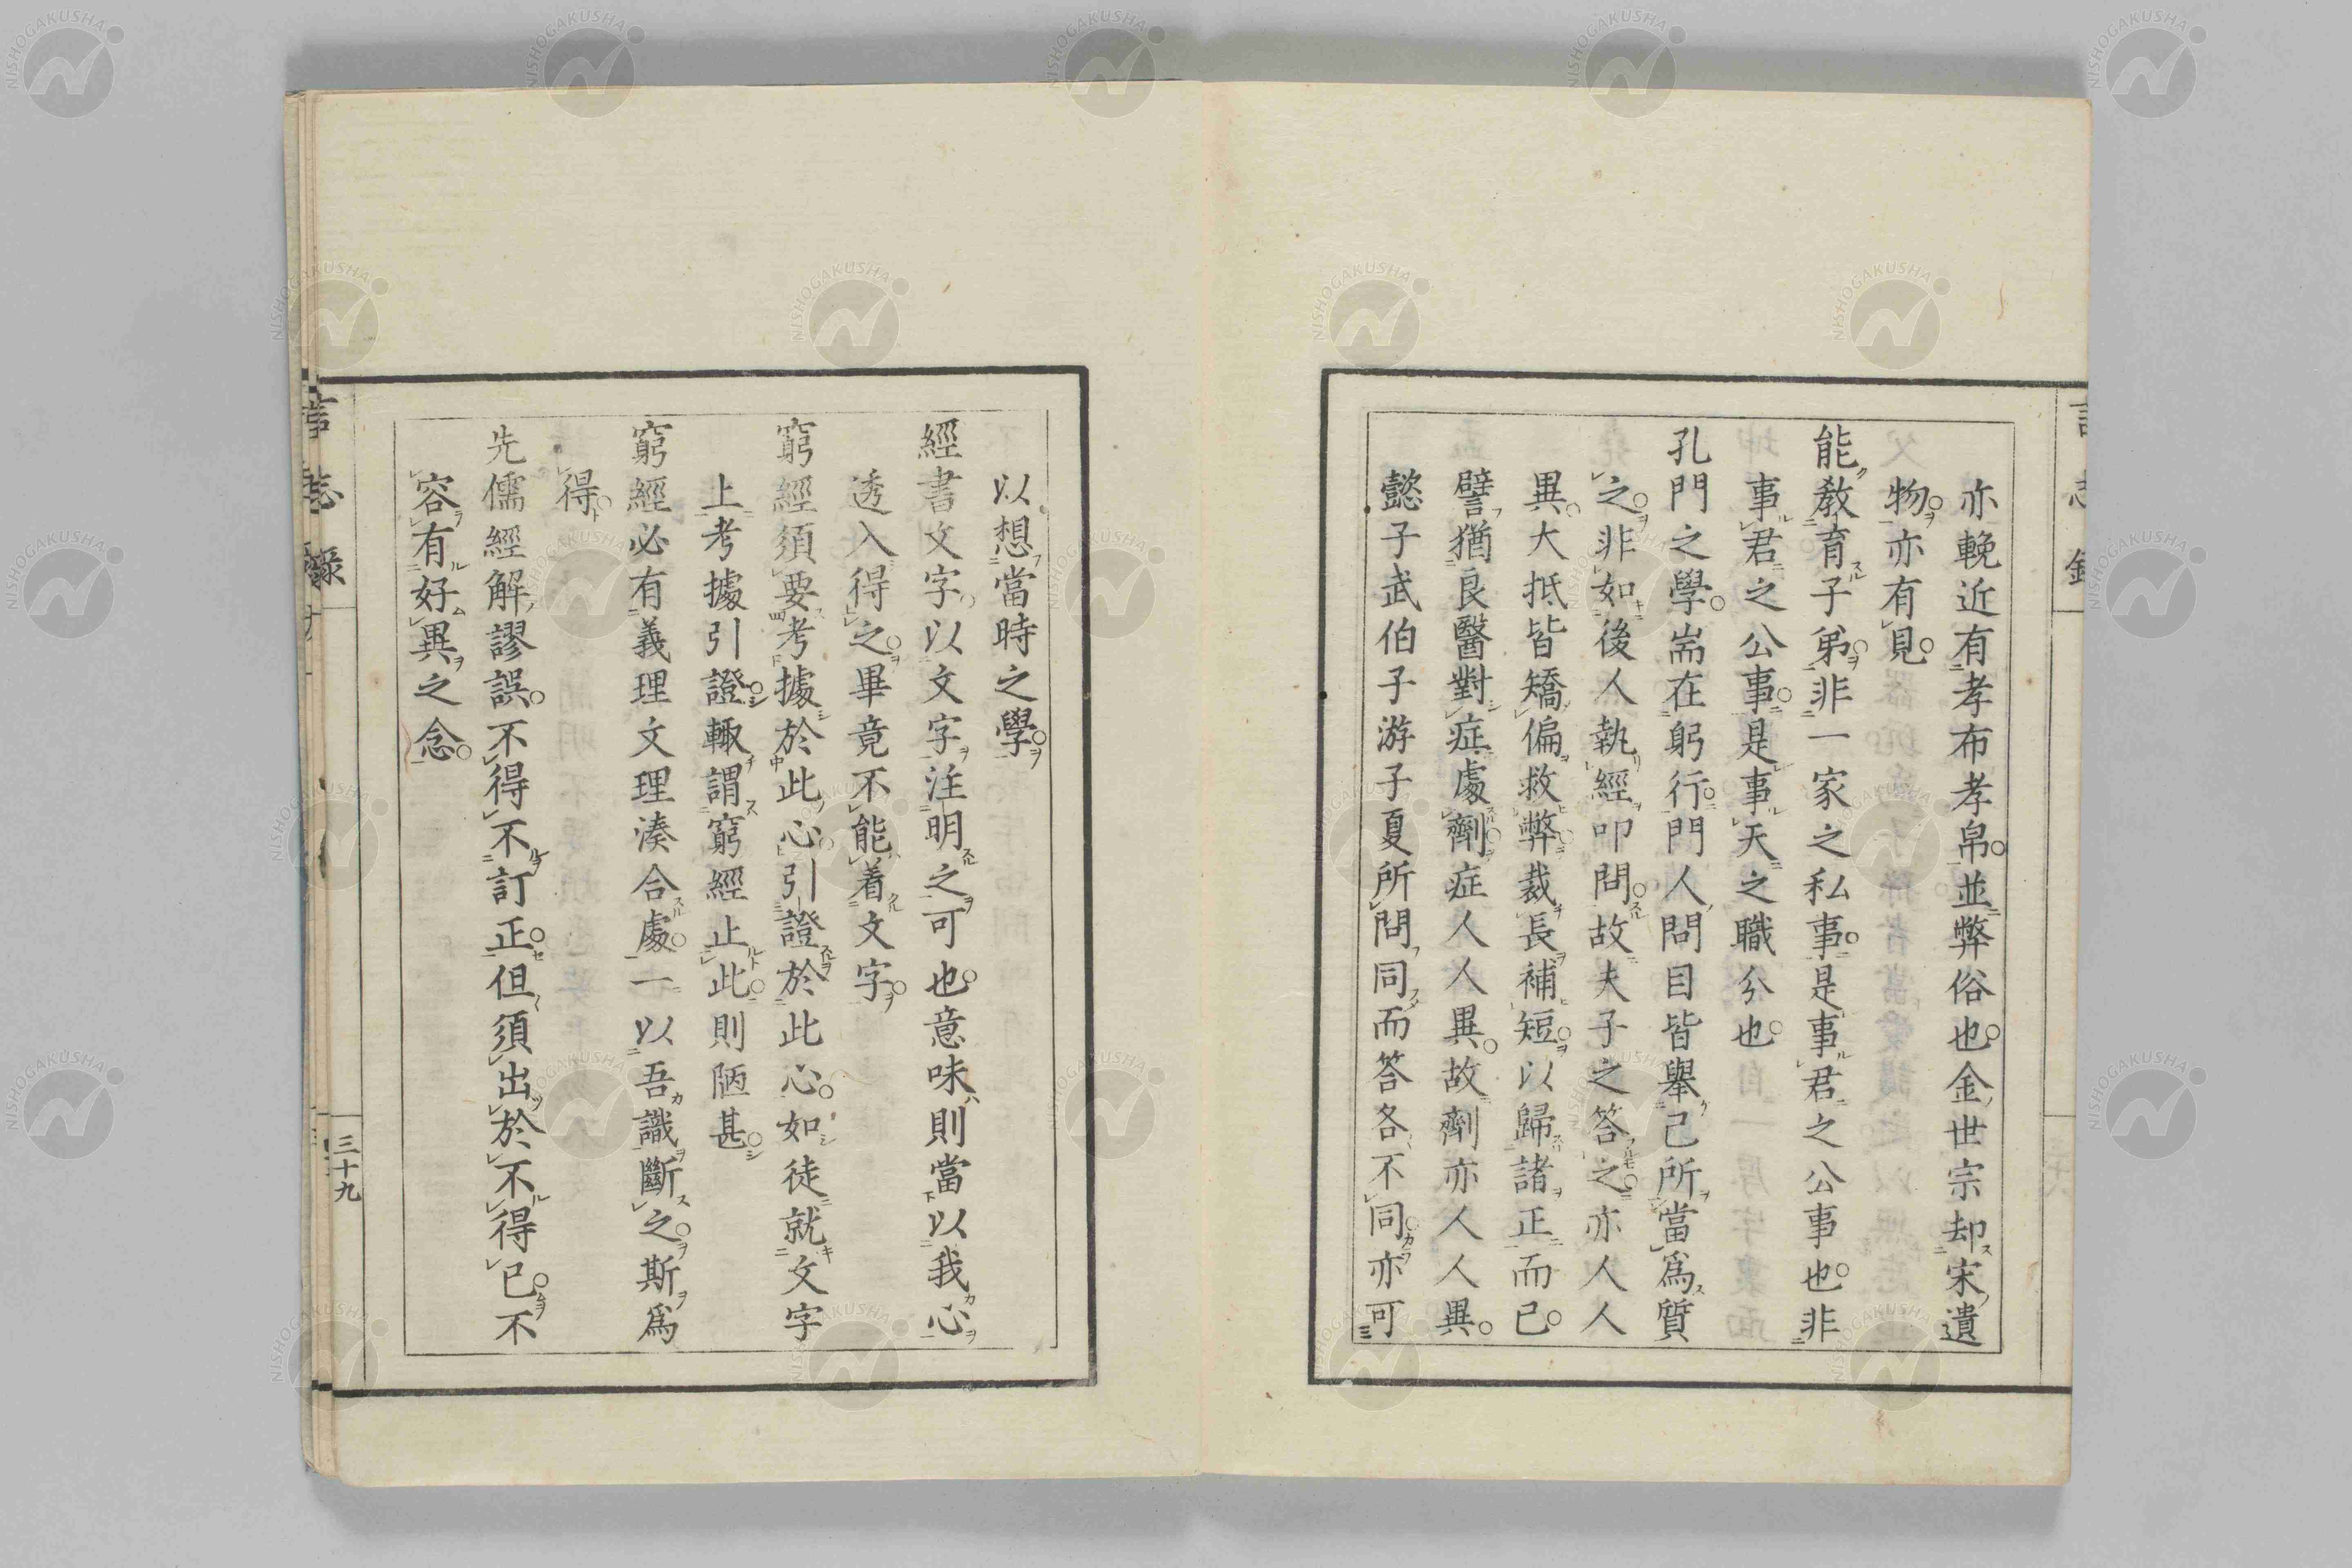 亦輓近有孝布孝帛並弊俗也金世宗却宋遺
物亦有見
能教育子弟非一家之私事是事君之公事也非
事君之公事是事天之職分也
孔門之學耑在躬行門人問目皆舉己所當為質
之非如後人執經叩問故夫子之答之亦人人
異大抵皆矯偏救弊裁長補短以歸諸正而已
譬猶良醫對症處劑症人人異故劑亦人人異
懿子武伯子游子夏所問同而答各不同亦可
以想當時之學
經書文字以文字注明之可也意味則當以我心
透入得之畢竟不能着文字
窮經須要考據於此心引證於此心如徒就文字
上考據引證輒謂窮經止此則陋甚
窮經必有義理文理湊合處一以吾識斷之斯為
得
先儒經解謬誤不得不訂正但須出於不得已不
容有好異之念
言志錄
三十九
NISHOGAKUSHA